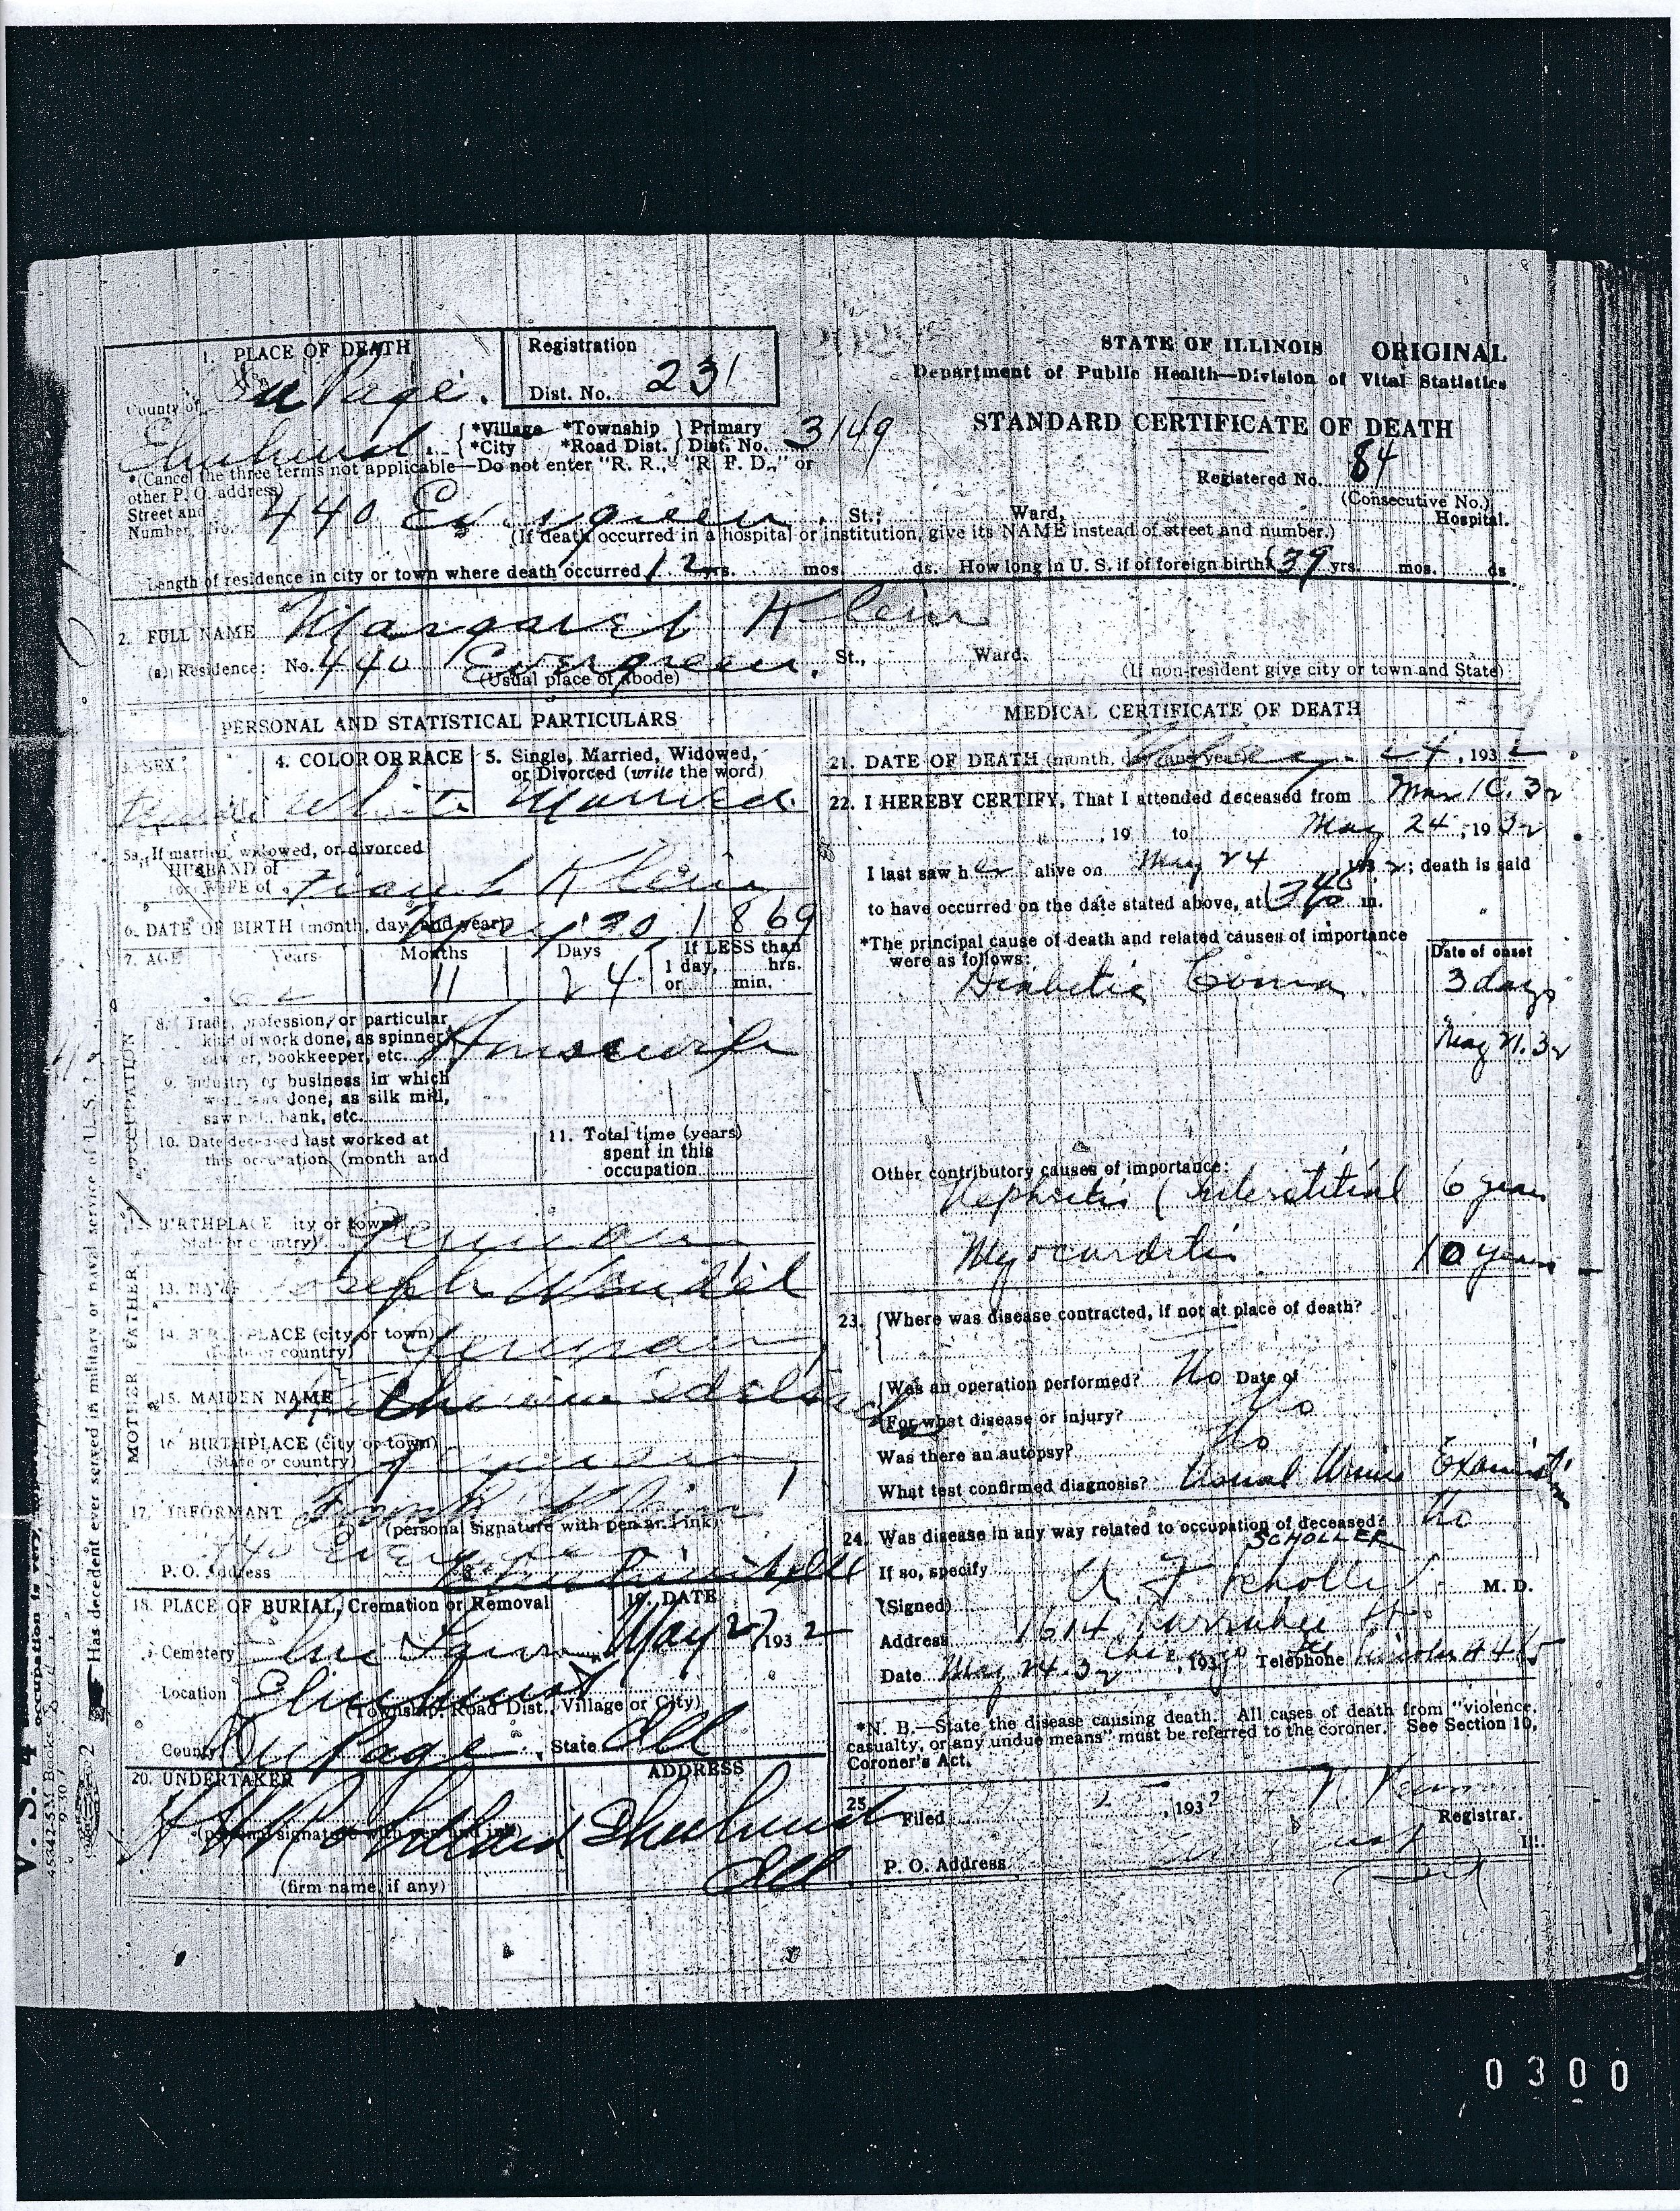 1. PLACE OF DEATH
County of Du Page.
Registration
Dist. No. 231
STATE OF ILLINOIS ORIGINAL
Department of Public Health—Division of Vital Statistics
STANDARD CERTIFICATE OF DEATH
Elmhurst *Village *Township Primary
*City *Road Dist. Dist. No. 3149
*(Cancel the three terms not applicable—Do not enter "R. R.," "R. F. D.," or
other P. O. address)
Registered No. 84
(Consecutive No.)
Street and
Number, No. 440 Evergreen. St.; Ward, Hospital.
(If death occurred in a hospital or institution, give its NAME instead of street and number.)
Length of residence in city or town where death occurred 12 yrs. mos. ds. How long in U. S. if of foreign birth? 39 yrs. mos. ds
2. FULL NAME Margaret Klein
(a) Residence: No. 440 Evergreen. St., Ward.
(Usual place of abode) (If non-resident give city or town and State)
PERSONAL AND STATISTICAL PARTICULARS
3. SEX
4. COLOR OR RACE
5. Single, Married, Widowed,
or Divorced (write the word)
Female White Married
5a. If married, widowed, or divorced
HUSBAND of
(or) WIFE of Frank Klein
6. DATE OF BIRTH (month, day, and year) 30 1869
7. AGE Years Months Days If LESS than
1 day, hrs.
or min.
11 24
8. Trade, profession, or particular
kind of work done, as spinner,
sawyer, bookkeeper, etc. Housewife
9. Industry or business in which
work was done, as silk mill,
saw mill, bank, etc.
10. Date deceased last worked at
this occupation (month and
11. Total time (years)
spent in this
occupation
OCCUPATION
12. BIRTHPLACE (city or town)
(State or country) Germany
FATHER
13. NAME Joseph Wendel
14. BIRTHPLACE (city or town)
(State or country) Germany
MOTHER
15. MAIDEN NAME Katherine
16. BIRTHPLACE (city or town)
(State or country) Germany
17. INFORMANT Frank Klein
(personal signature with pen and ink)
P. O. Address 440 Evergreen
18. PLACE OF BURIAL, Cremation or Removal
19. DATE
Cemetery Elm Lawn May 27 1932
Location Elmhurst
(Township, Road Dist., Village or City)
County Du Page, State Ill
20. UNDERTAKER ADDRESS
(personal signature with pen and ink)
Elmhurst
Ill
(firm name, if any)
MEDICAL CERTIFICATE OF DEATH
21. DATE OF DEATH (month, day, and year) May 24, 1932
22. I HEREBY CERTIFY, That I attended deceased from Mar 10. 32
, 19 to May 24, 1932
I last saw her alive on May 24 1932; death is said
to have occurred on the date stated above, at 340 m.
*The principal cause of death and related causes of importance
were as follows:
Date of onset
Diabetic Coma 3 days
May 21. 32
Other contributory causes of importance:
Nephritis (Interstitial 6 years
Myocarditis 10 years
23. Where was disease contracted, if not at place of death?
Was an operation performed? No Date of
For what disease or injury? No
Was there an autopsy? No
What test confirmed diagnosis? Usual Urine Examination
24. Was disease in any way related to occupation of deceased? No
SCHOLLER
If so, specify
(Signed) A F Scholler M. D.
Address 1614 Larrabee St.
Chicago
Date May 24. 32, 193 Telephone Lincoln 4465
*N. B.—State the disease causing death. All cases of death from "violence,
casualty, or any undue means" must be referred to the coroner. See Section 10,
Coroner's Act.
25. Filed , 1932
Registrar.
P. O. Address Ill.
Has decedent ever served in military or naval service of U. S.?
V. S. 4
occupation is very
0300